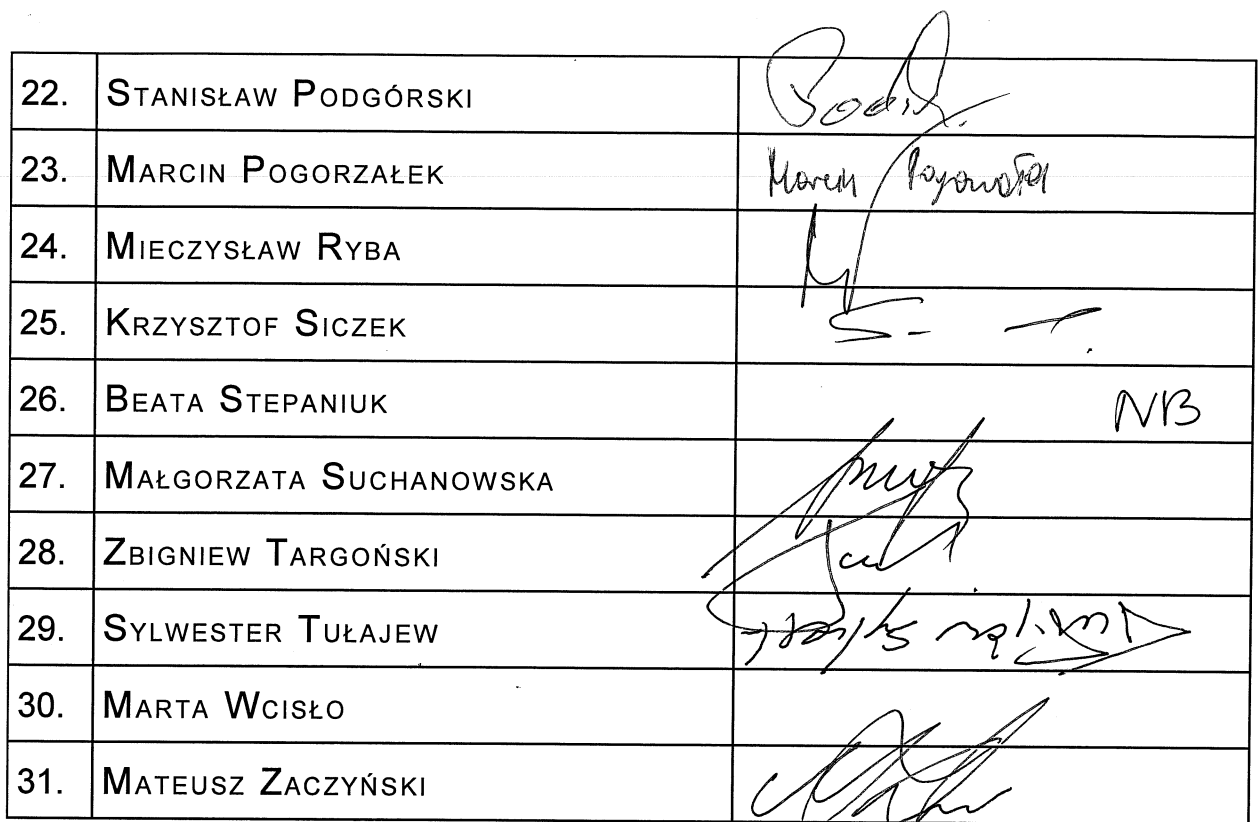 22. STANISŁAW PODGÓRSKI
23. MARCIN POGORZAŁEK Marcin
24. MIECZYSŁAW RYBA
25. KRZYSZTOF SICZEK
26. BEATA STEPANIUK NB
27. MAŁGORZATA SUCHANOWSKA
28. ZBIGNIEW TARGOŃSKI
29. SYLWESTER TUŁAJEW
30. MARTA WCISŁO
31. MATEUSZ ZACZYŃSKI